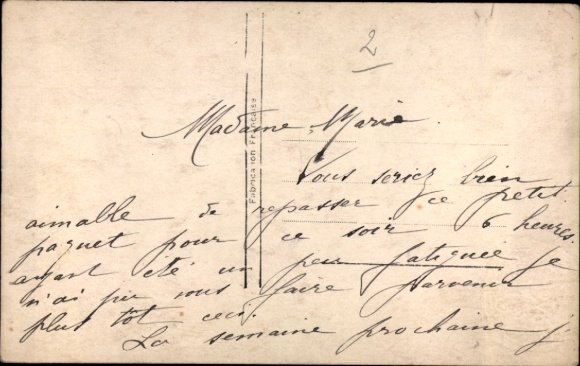 2
Fabrication Française
Madame Marie
Vous seriez bien
aimable de repasser ce petit
paquet pour ce soir 6 heures.
ayant été un peu fatiguée je
n'ai pu vous faire parvenir
plus tôt ceci.
La semaine prochaine j